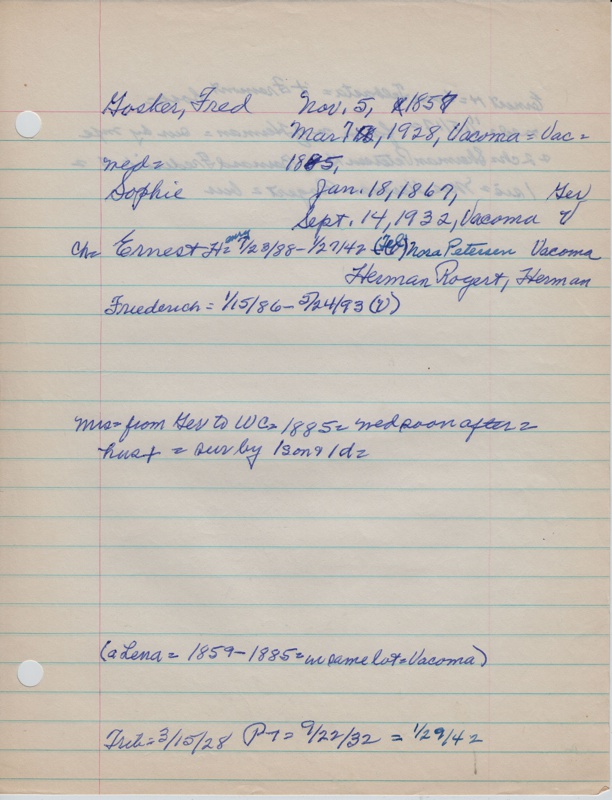 Gosker, Fred Nov. 5, 1857
Mar 7, 1928, Vacoma = Vac =
wed = 1885,
Sophie Jan. 18, 1867, Ger
Sept. 14, 1932, Vacoma V
ch = Ernest H = 7/23/88 - 1/27/42 Nora Petersen Vacoma
Herman Rogert, Herman
Friederich = 1/15/86 - 5/24/93 (V)
mrs = from Ger to WC = 1885 = wed soon after =
hus + = sur by 1 son & 1 d =
(a Lena = 1859 - 1885 = in same lot = Vacoma)
Trib = 3/15/28 PT = 9/22/32 = 1/29/42